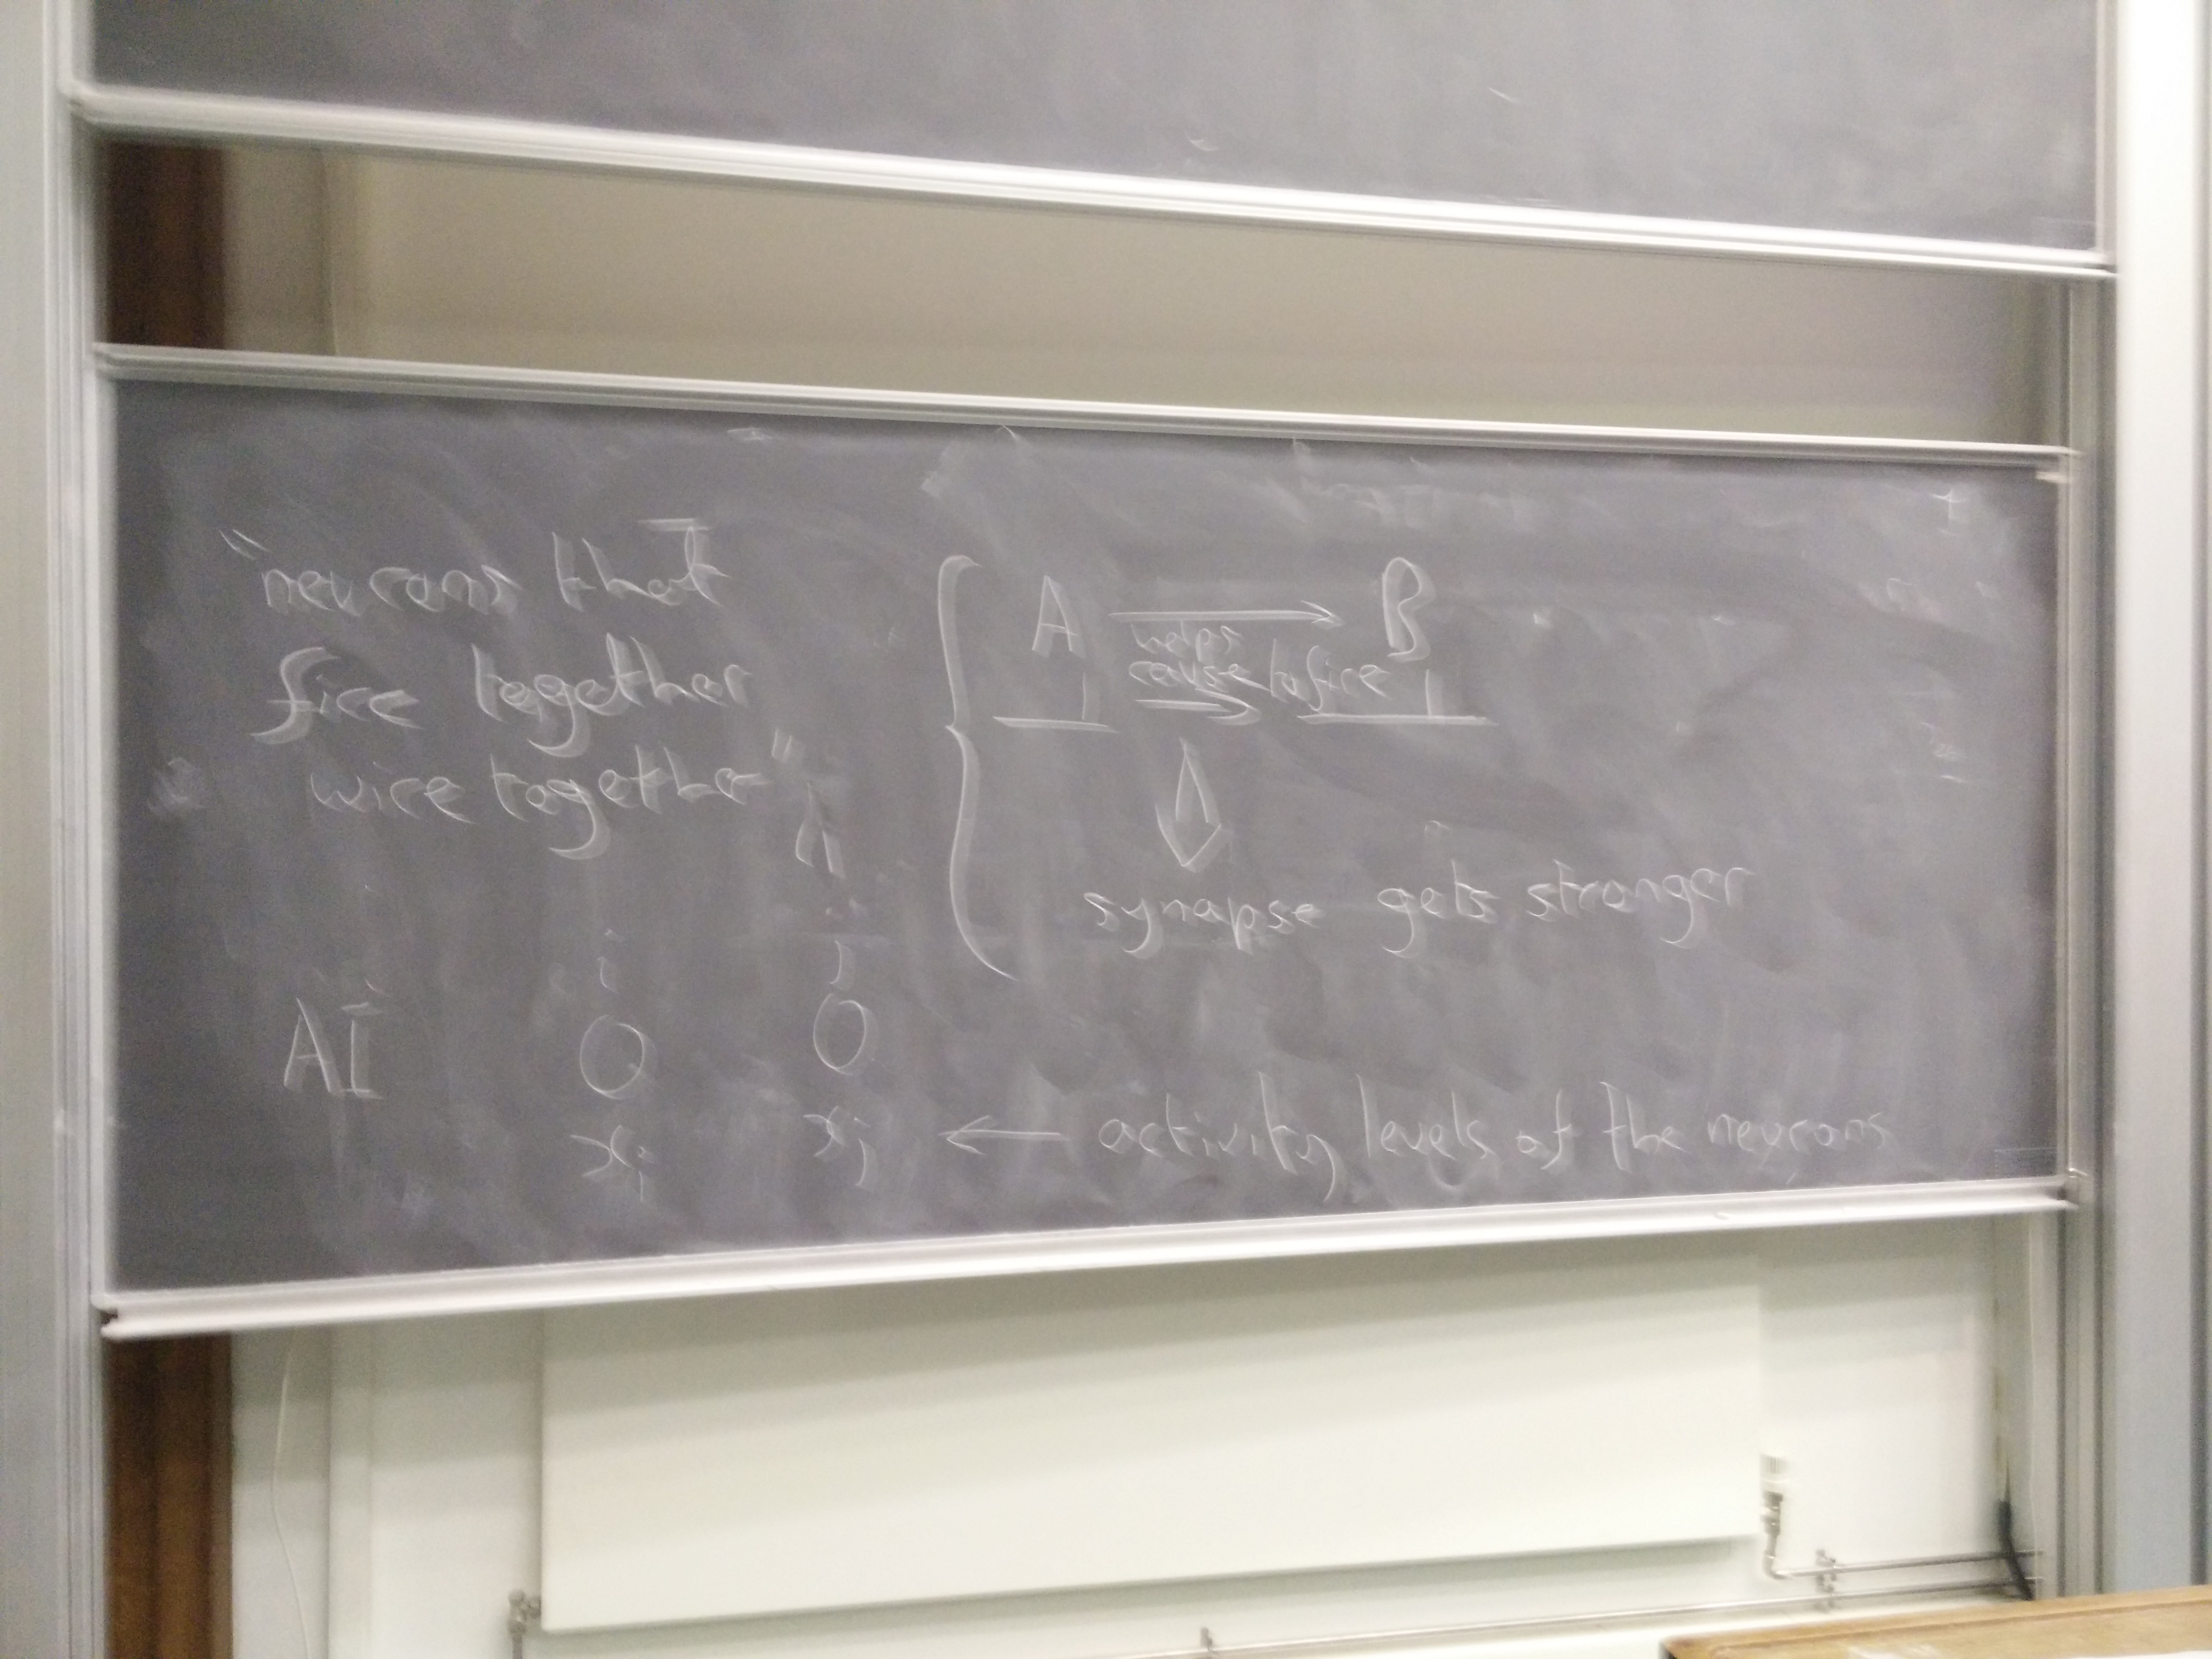 "neurons that
fire together
wire together"
A → B
helps
cause to fire
⇓
synapse gets stronger
i j
AI O O
xi xj ← activity levels of the neurons